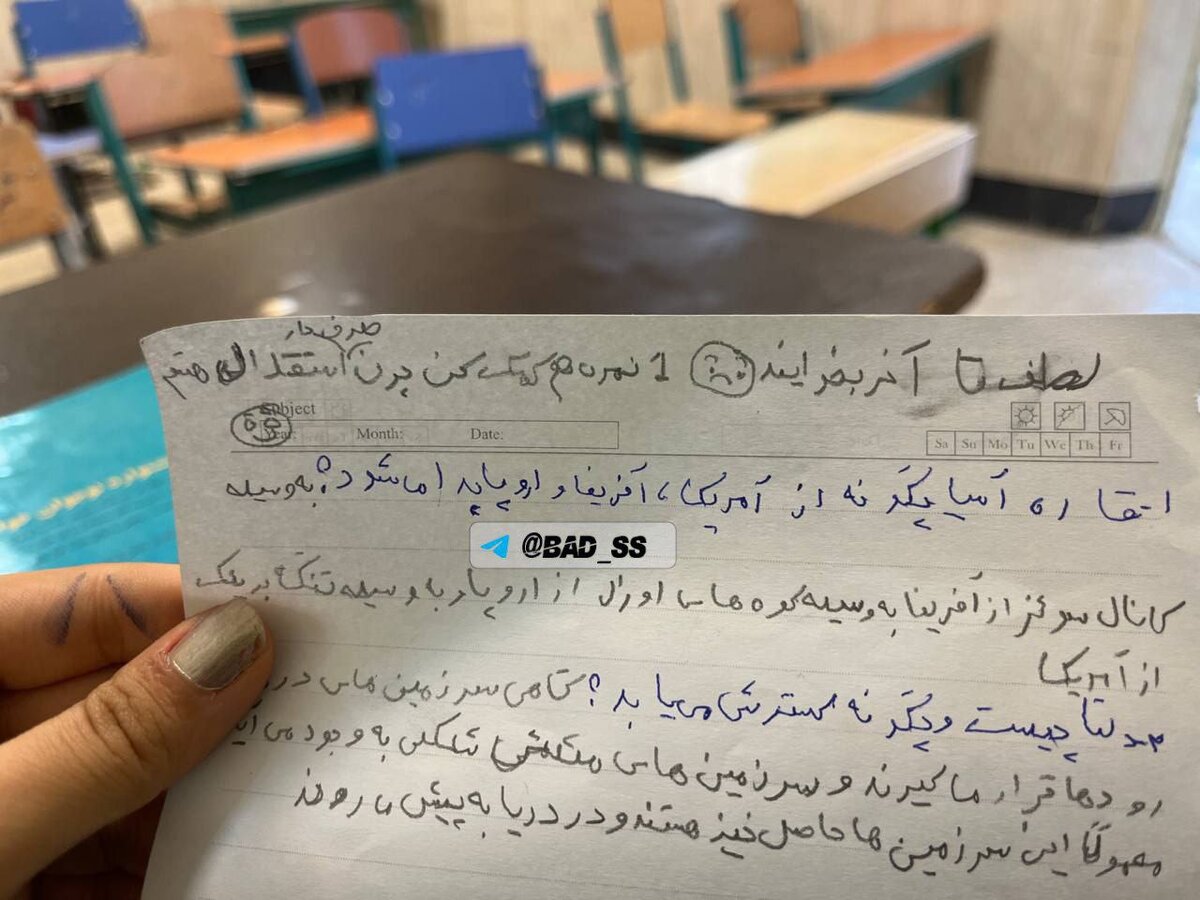 طرفدار
لطف تا آخر بخوانید 1 نمره هم کمک کن چون استقلال هستم
Subject
Year: Month: Date:
Sa Su Mo Tu We Th Fr
۱ قاره آسیا چگونه از آمریکا، آفریقا و اروپا جدا می شود؟ به وسیله
@BAD_SS
کانال سوئز از آفریقا به وسیله کوه های اورال از اروپا و به وسیله تنگه برینگ
از آمریکا
۲- دلتا چیست و چگونه گسترش می یابد؟ گاهی سرزمین های در
رودها قرار می گیرند و سرزمین های مثلثی شکلی به وجود می آید
معمولاً این سرزمین ها حاصل خیز هستند و در دریا به پیش می روند